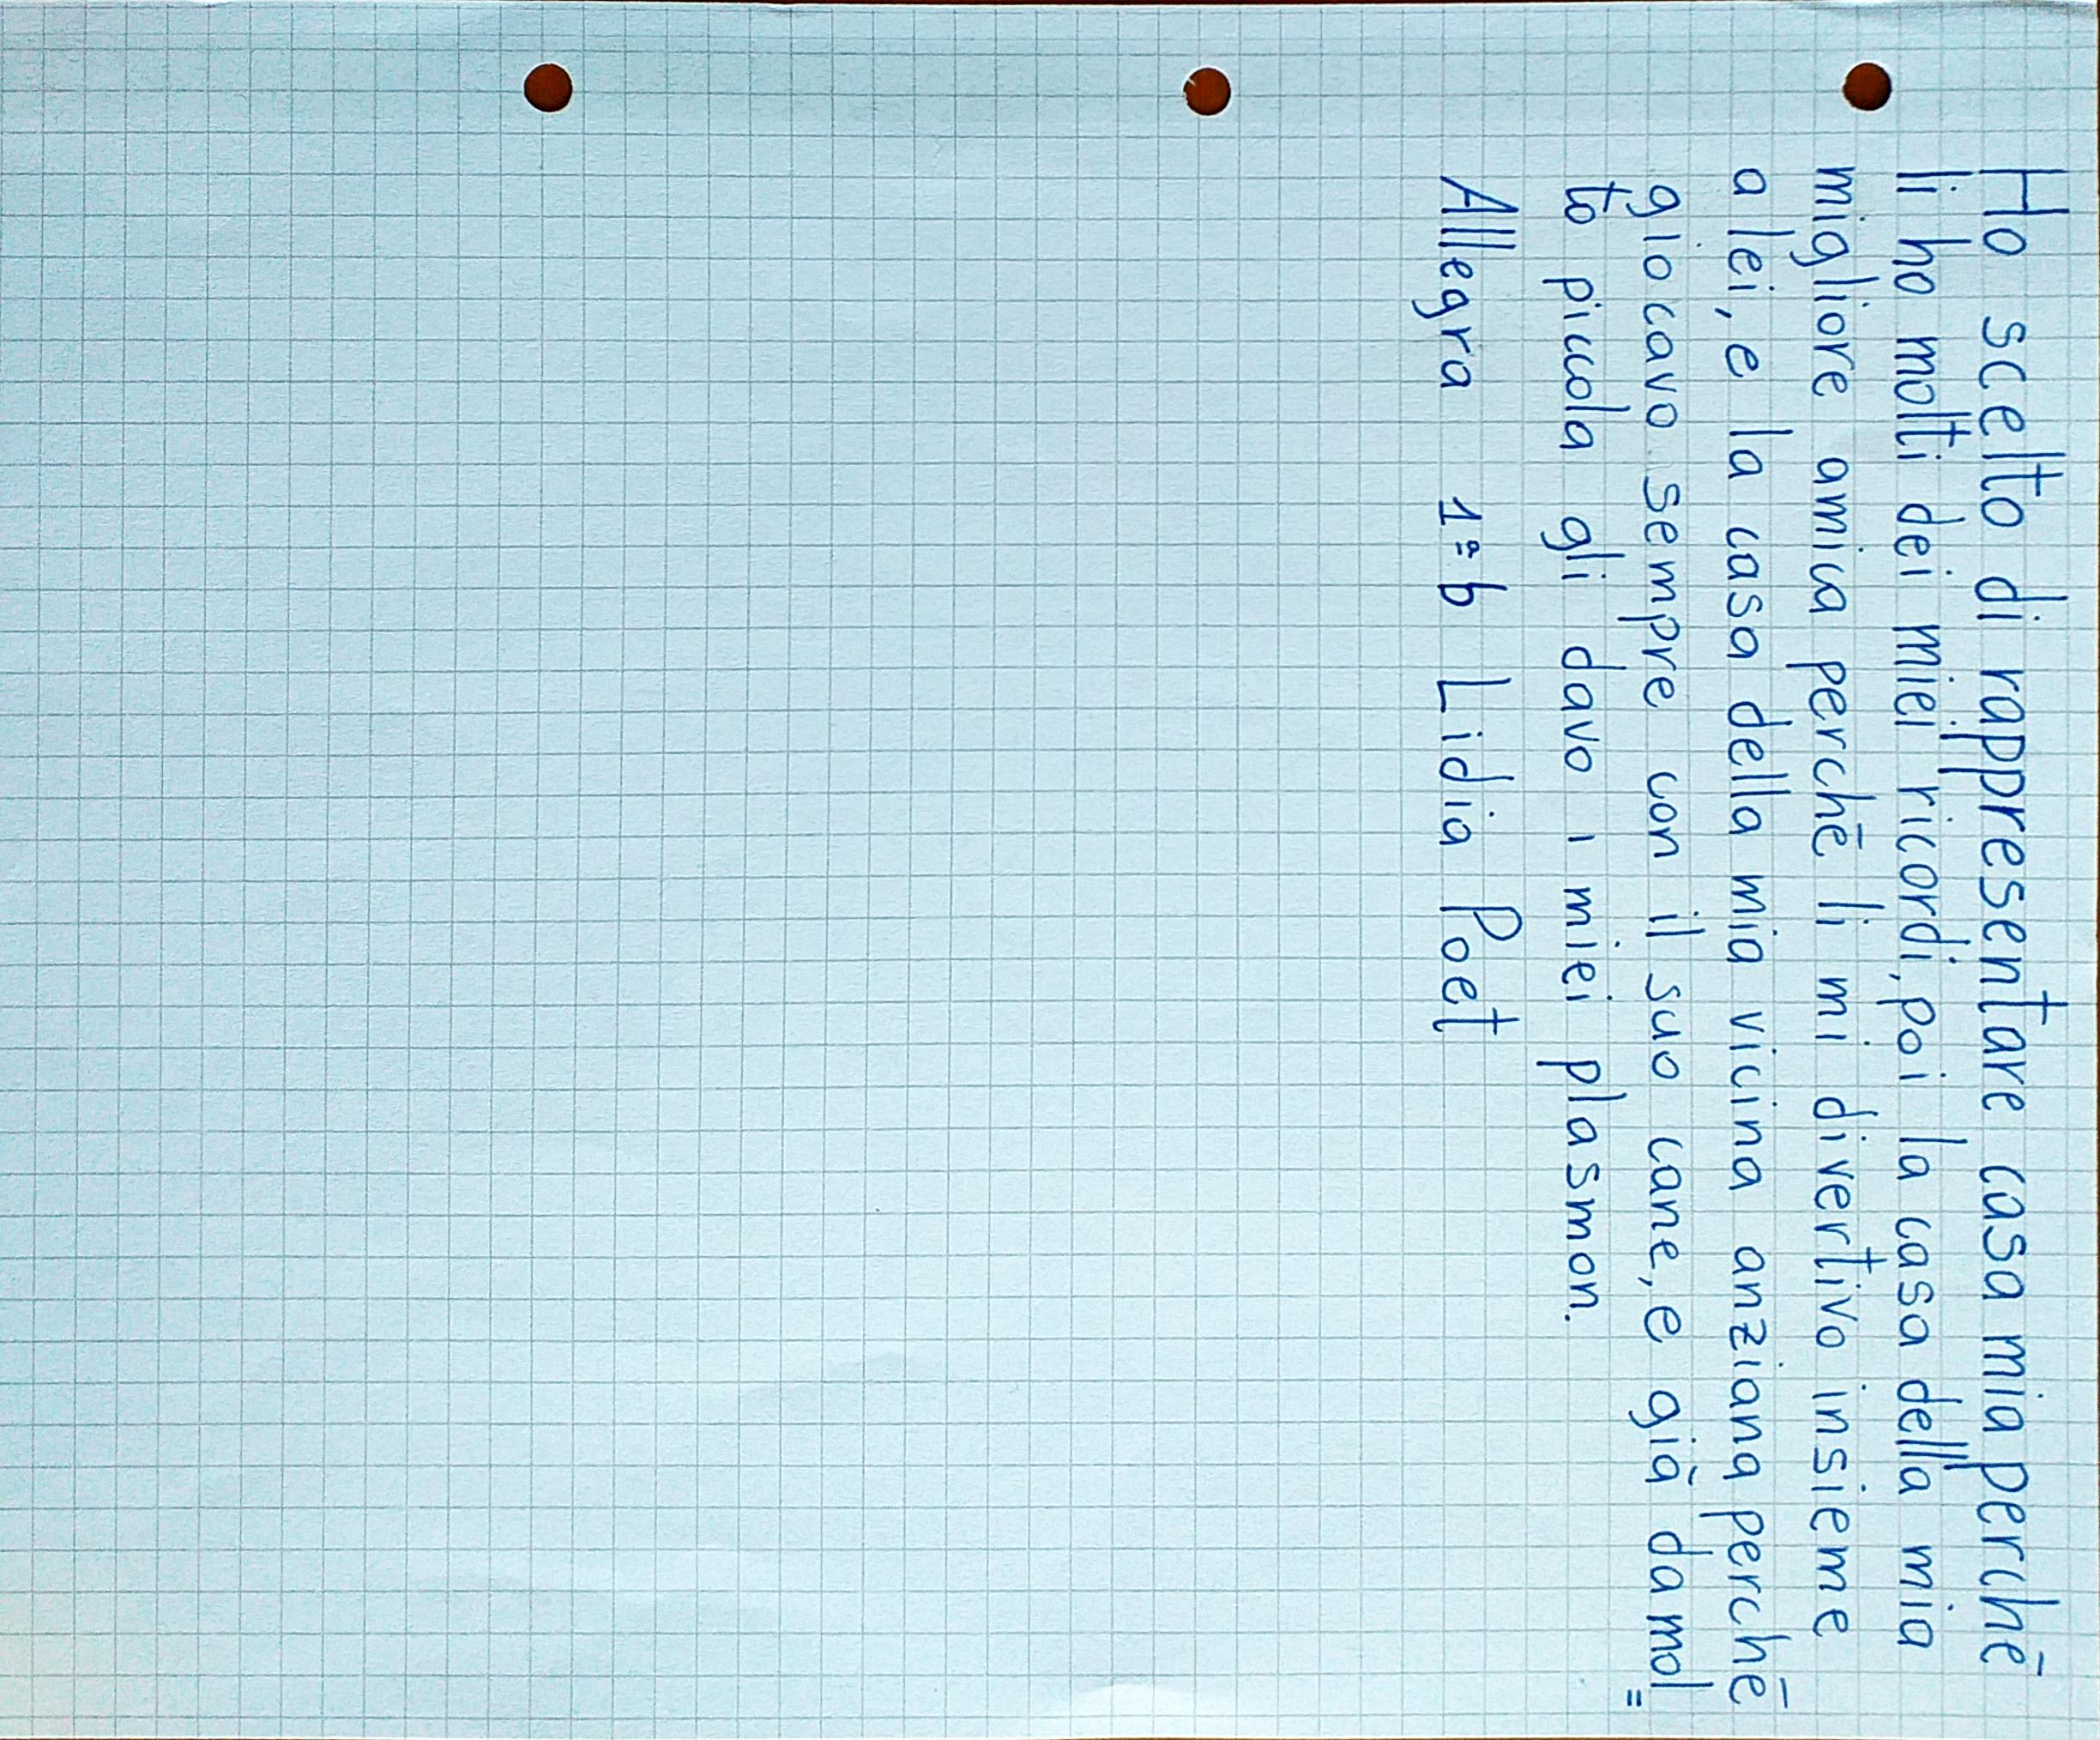 Ho scelto di rappresentare casa mia perchē
li ho molti dei miei ricordi, poi la casa della mia
migliore amica perchē li mi divertivo insieme
a lei, e la casa della mia vicina anziana perchē
giocavo sempre con il suo cane, e già da mol=
to piccola gli davo i miei plasmon.
Allegra 1ªb Lidia Poet